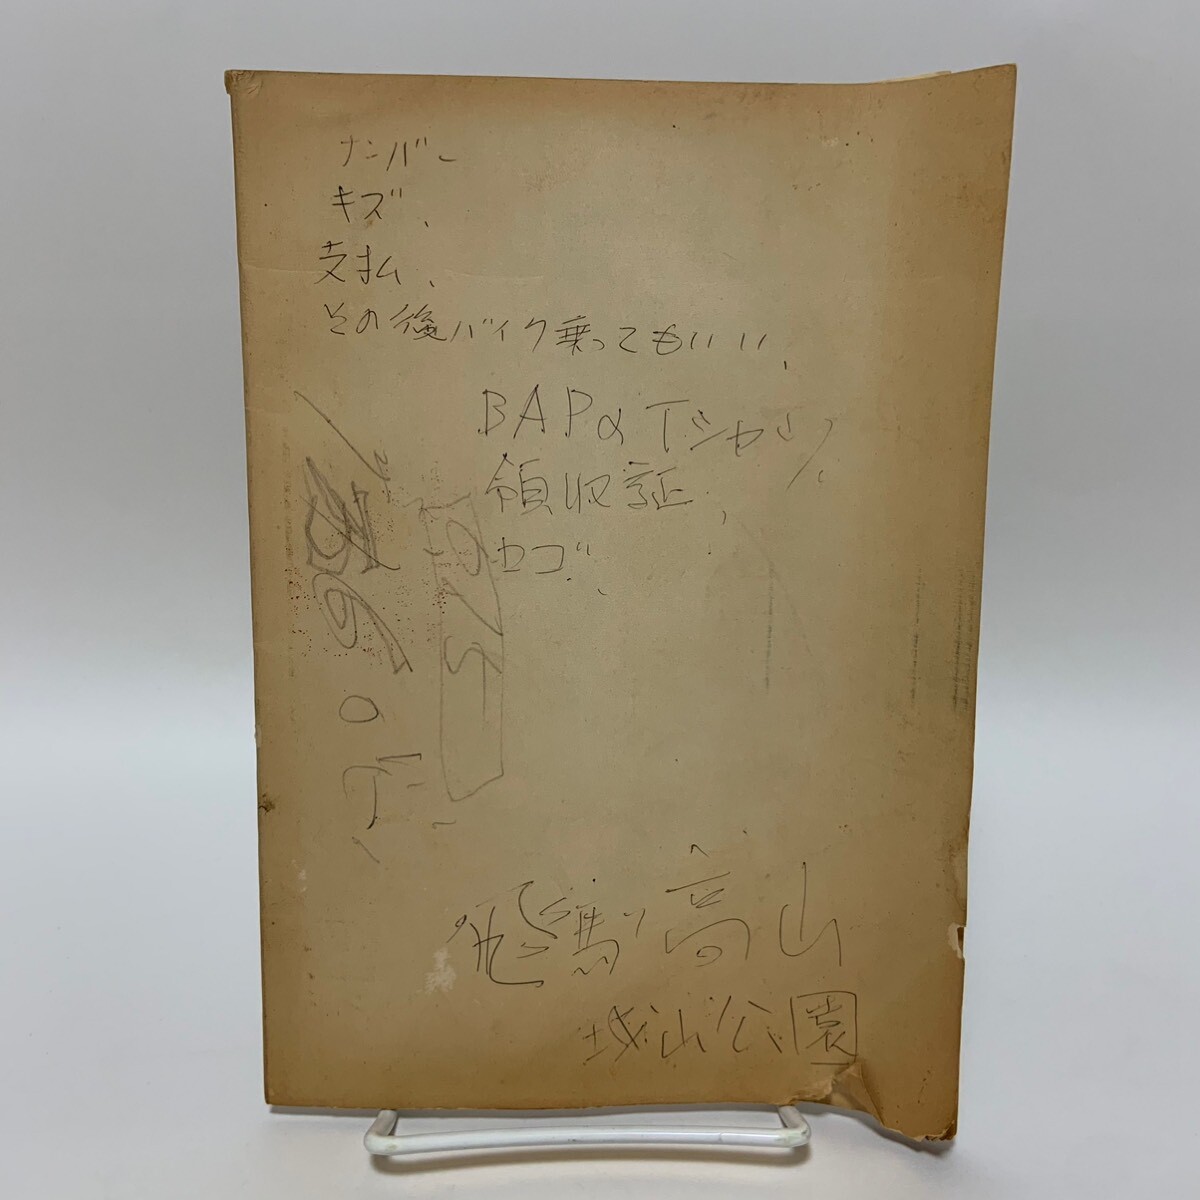 ナンバー
キズ、
支払、
その後バイク乗ってもいい、
BAPのTシャツ、
領収証、
カゴ、
飛騨高山
城山公園